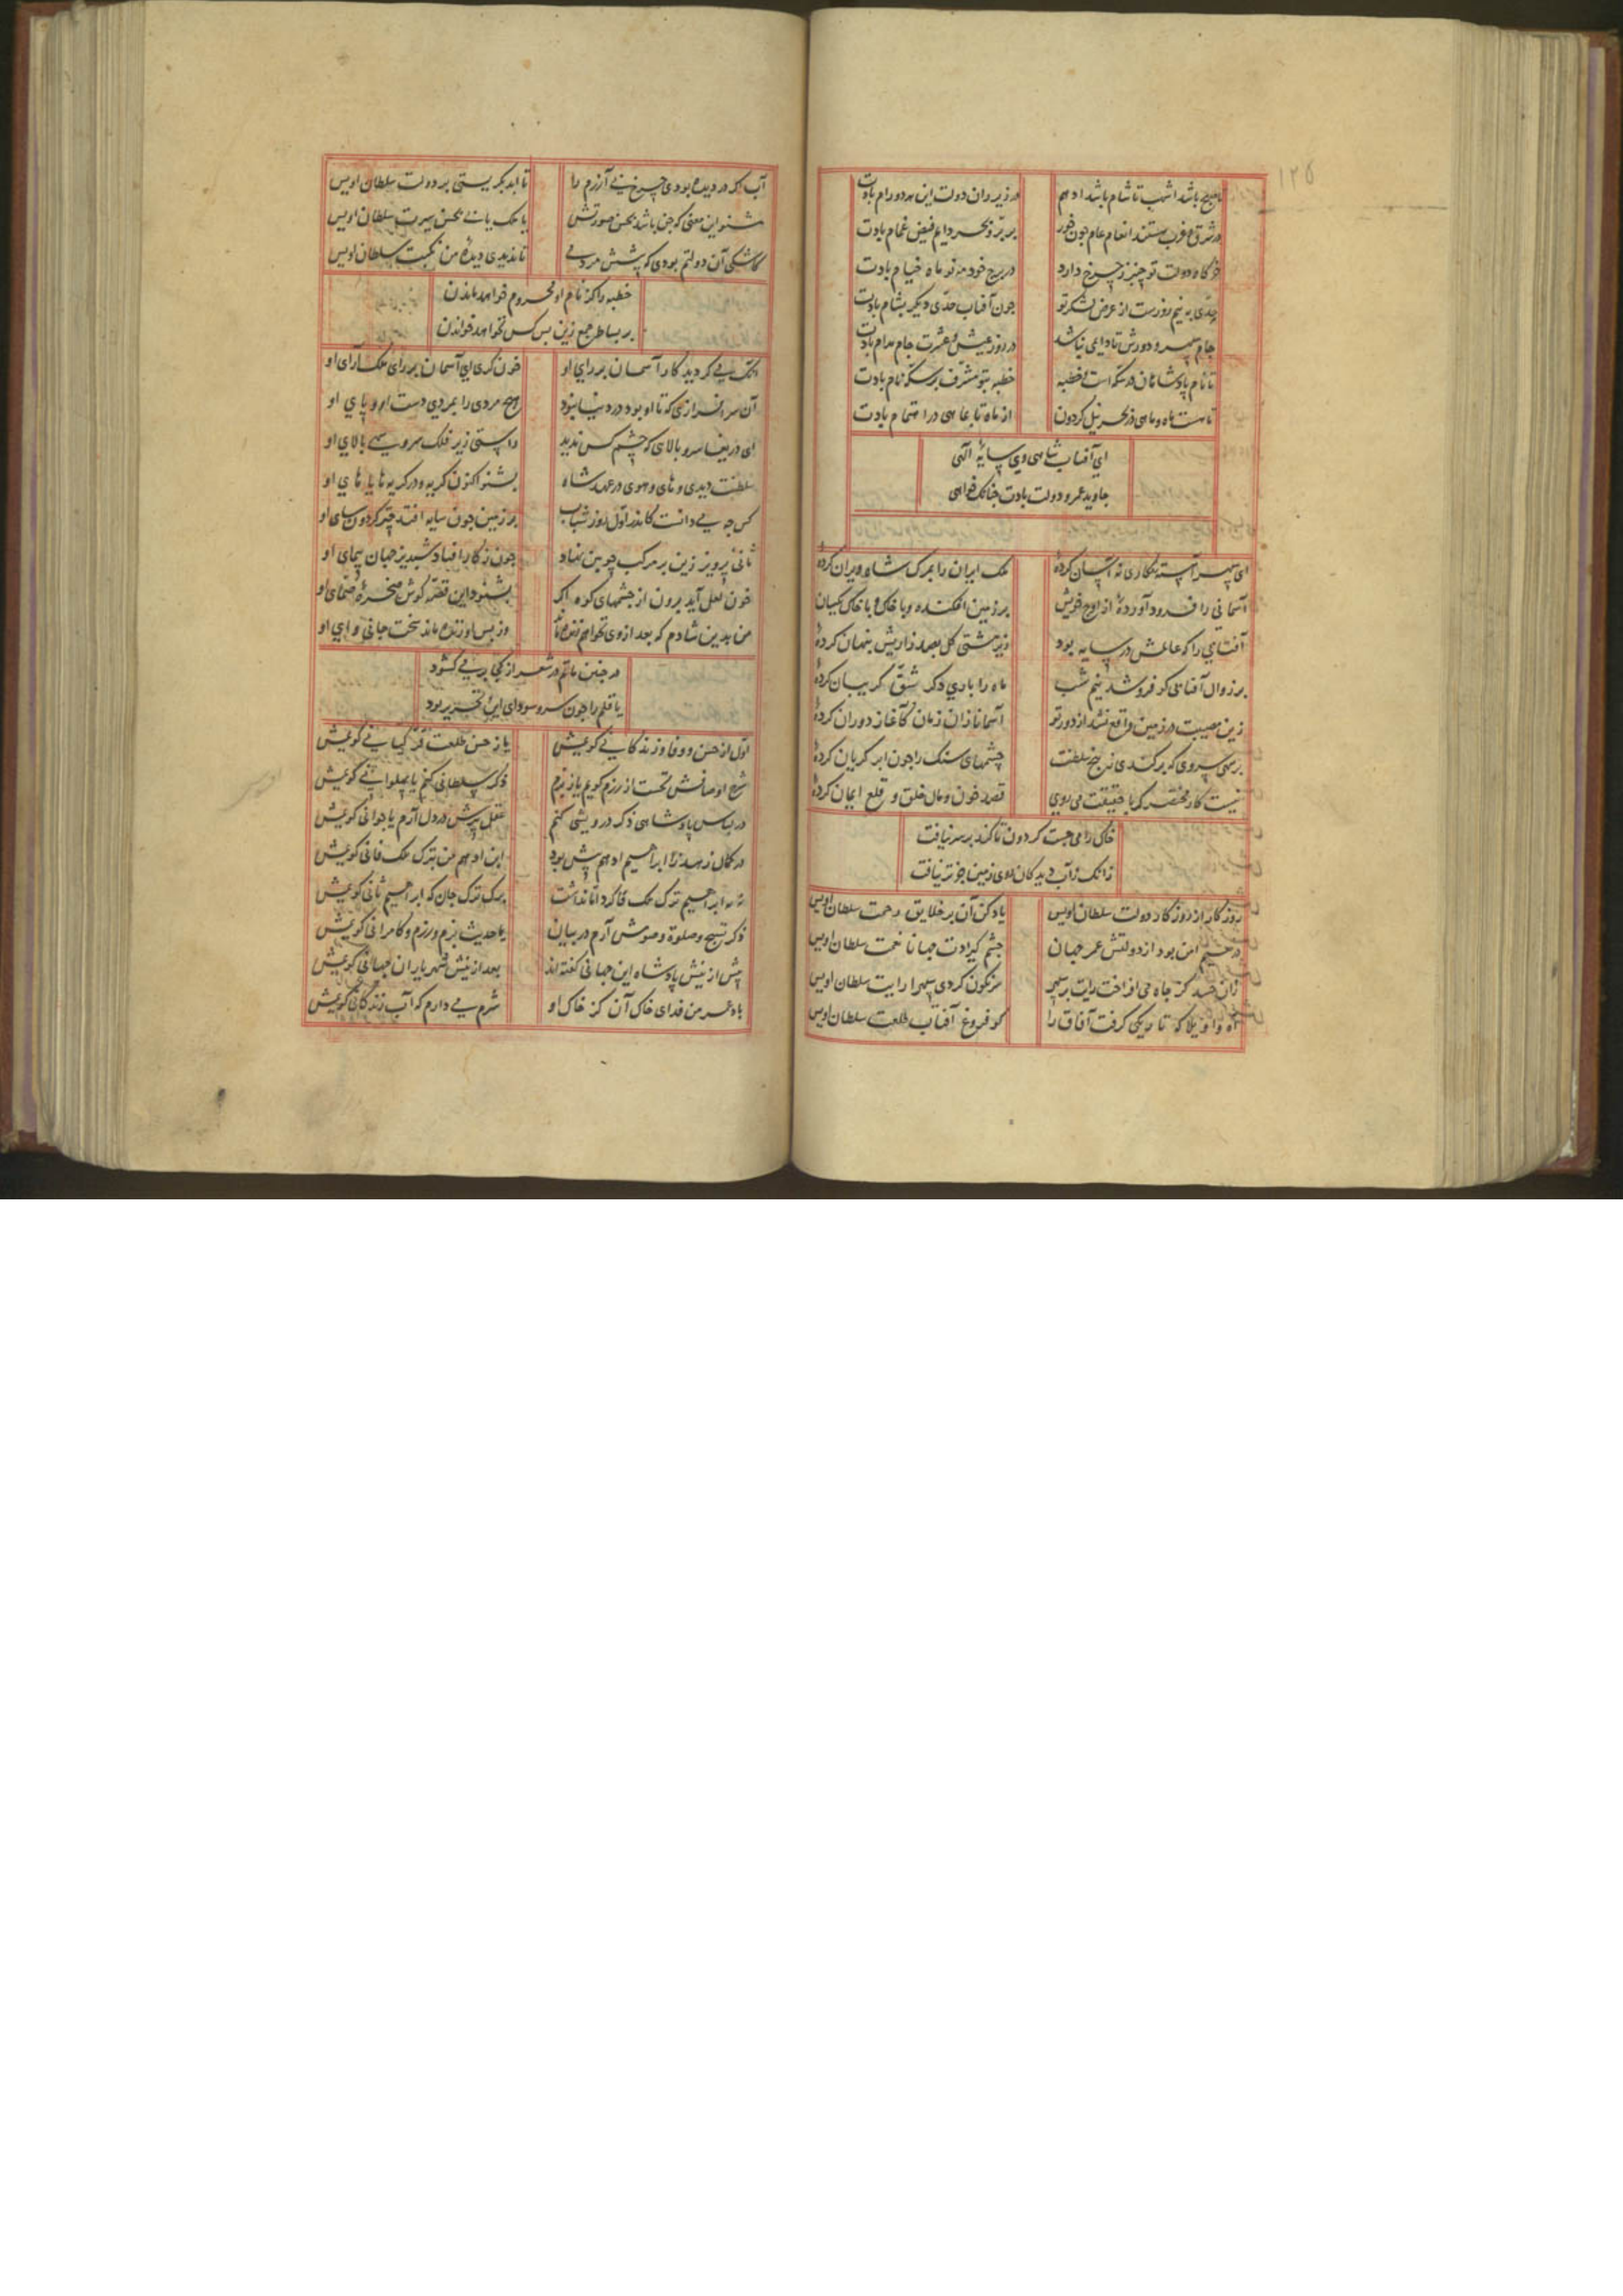 ۱۲۵
تا صبح باشد اشهب تا شام باشد ادهم در زیر ران دولت این هر دو رام بادت
در شرق و غرب هستند انعام عام چون خور بر بر و بحر دایم فیض غمام بادت
خرگاه دولت تو چنبر ز چرخ دارد در برج خود مه نو ماه خیام بادت
حدی به نیم روزست از عرض لشکر تو چون آفتاب حدی دیگر بشام بادت
جام سپهر و دورش تا دایمی نباشد در روز عیش و عشرت جام مدام بادت
تا نام پادشاهان در سکه است و خطبه خطبه بتو مشرف بر سکه نام بادت
تا هست ماه و ماهی در بحر نیل گردون از ماه تا بماهی در اهتمام بادت
ای آفتاب شاهی وی سایهٔ الهی
جاوید عمر و دولت بادت چنانک خواهی
ای سپهر آهسته کاری نه آسان کردهٔ ملک ایران را بمرگ شاه ویران کردهٔ
آسمانی را فرود آوردهٔ از اوج خویش بر زمین افکنده و با خاک یکسان
آفتابی را که عالمش در سایه بود زیر مشتی گل بصد زاریش پنهان کردهٔ
بر زوال آفتابی کو فرو شد نیم شب ماه را بادی دگر شق گریبان کردهٔ
زین مصیبت در زمین واقع نشد از دور تو آسمانا زان زمان کآغاز دوران کردهٔ
بر سهی سروی که برکندی ز رخ سلطنت چشمهای سنگ را چون ابر گریان کردهٔ
نیست کار مختصر گر با حقیقت می روی قصد خون و مال خلق و قلع ایمان کردهٔ
خاک را می جست گردون تا کند بر سر نیافت
زانک زآب دیدگان روی زمین جز تر نیافت
روزگار از روزگار دولت سلطان اویس یاد کن آن بر خلایق رحمت سلطان اویس
در حریم امن بود از دولتش عمر جهان چشم گیرادت جهانا نعمت سلطان اویس
زان حسد کز جاه می افراخت رایت بر سپهر سرنگون کردی سپهرا رایت سلطان اویس
آه واویلا که تاریکی گرفت آفاق را کو فروغ آفتاب طلعت سلطان اویس
آب اگر در دیده بودی چرخ بی آزرم را تا ابد بگریستی بر دولت سلطان اویس
مشنو این معنی که جز باشد بحسن صورتش یا ملک یا نی بحسن سیرت سلطان اویس
کاشکی آن دولتم بودی که پیشش مردمی تا ندیدی دیدهٔ من نکبت سلطان اویس
خطبه را کز نام او محروم خواهد ماندن
بر بساط جمع زین پس کس نخواهد خواندن
آنک می گردید کار آسمان بر رای او خون گری ای آسمان بر رای ملک آرای او
آن سرافرازی که تا او بود در دنیا نبود هیچ مردی را بمردی دست او و پای او
ای دریغا سرو بالای که چشم کس ندید راستی زیر فلک سرو سهی بالای او
سلطنت دیدی و های و هوی در عهد شاه بشنو اکنون گریه و در گریه ها یا های او
کس چه می دانست کاندر اول روز شباب بر زمین چون سایه افتد چتر گردون سای او
ثانی پرویز زین بر مرکب چوبین نهاد چون ز کار افتاد شبدیز جهان پیمای او
خون لعل آید برون از چشمهای کوه اگر بشنود این قصه گوش صخرهٔ صمای او
من بدین شادم که بعد از وی نخواهم زنده ماند وز پس او زنده ماند سخت جانی وای او
در چنین ماتم در شعر از کجا بر می گشود
یا قلم را چون سر و سودای این تحریر بود
اول از حسن و وفا و زندگانی گویمش یا ز حسن طلعت و فر کیانی گویمش
شرح اوصافش نخست از رزم گویم یا ز بزم ذکر سلطانی کنم یا پهلوانی گویمش
در لباس پادشاهی ذکر درویشی کنم عقل پیرش در دل آرم یا جوانی گویمش
در کمال زهد نزد ابراهیم ادهم پیش بود ابن ادهم من بترک ملک فانی گویمش
نه نه ابراهیم ترک ملک خاکرد اما نداشت برگ ترک جان که ابراهیم ثانی گویمش
ذکر تسبیح و صلوة و صومش آرم در بیان یا حدیث بزم و رزم و کامرانی گویمش
پیش ازینش پادشاه این جهانی گفته اند بعد ازینش شهریار آن جهانی گویمش
باد عمر من فدای خاک آن کز خاک او شرم می دارم که آب زندگانی گویمش